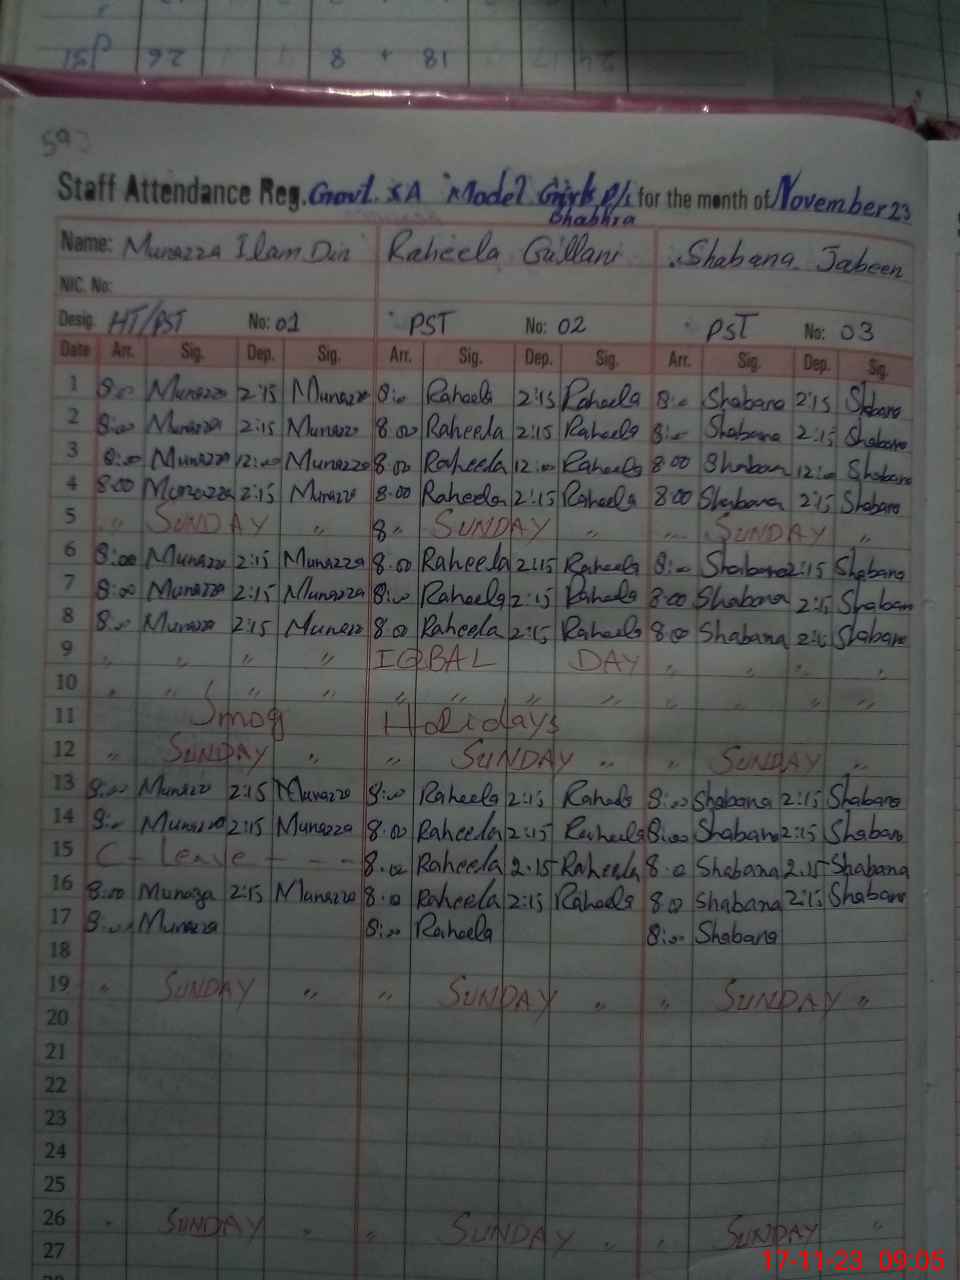 26 8 18
592
Staff Attendance Reg. Govt. SA Model Girls P/S for the month of November 23
Bhabhra
Name: Munazza Ilam Din Raheela Gillani Shabana Jabeen
NIC. No:
Desig. HT/PST No: 01 PST No: 02 PST No: 03
Date Arr. Sig. Dep. Sig. Arr. Sig. Dep. Sig. Arr. Sig. Dep. Sig.
1 8:00 Munazza 2:15 Munazza 8:00 Raheela 2:15 Raheela 8:00 Shabana 2:15 Shabana
2 8:00 Munazza 2:15 Munazza 8.00 Raheela 2:15 Raheela 8:00 Shabana 2:15 Shabana
3 8:00 Munazza 12:00 Munazza 8.00 Raheela 12:00 Raheela 8.00 Shaban 12:00 Shabana
4 8:00 Munazza 2:15 Munazza 8.00 Raheela 2:15 Raheela 8.00 Shabana 2:15 Shabana
5 " SUNDAY " 8 " SUNDAY " " SUNDAY "
6 8:00 Munazza 2:15 Munazza 8.00 Raheela 2:15 Raheela 8:00 Shabana 2:15 Shabana
7 8:00 Munazza 2:15 Munazza 8:00 Raheela 2:15 Raheela 8.00 Shabana 2:15 Shabana
8 8:00 Munazza 2:15 Munazza 8.00 Raheela 2:15 Raheela 8.00 Shabana 2:15 Shabana
9 " " " " IQBAL DAY " " " "
10 " " " " " " " " " " " "
11 Smog Holidays
12 " SUNDAY " " SUNDAY " " SUNDAY "
13 8:00 Munazza 2:15 Munazza 8:00 Raheela 2:15 Raheela 8:00 Shabana 2:15 Shabana
14 8:00 Munazza 2:15 Munazza 8.00 Raheela 2:15 Raheela 8:00 Shabana 2:15 Shabana
15 C - Leave - - - - 8.00 Raheela 2.15 Raheela 8.0 Shabana 2.15 Shabana
16 8:00 Munazza 2:15 Munazza 8.0 Raheela 2:15 Raheela 8.00 Shabana 2:15 Shabana
17 8:00 Munazza 8:00 Raheela 8:00 Shabana
18
19 " SUNDAY " " SUNDAY " " SUNDAY "
20
21
22
23
24
25
26 " SUNDAY " " SUNDAY " " SUNDAY "
27
17-11-23 09:05